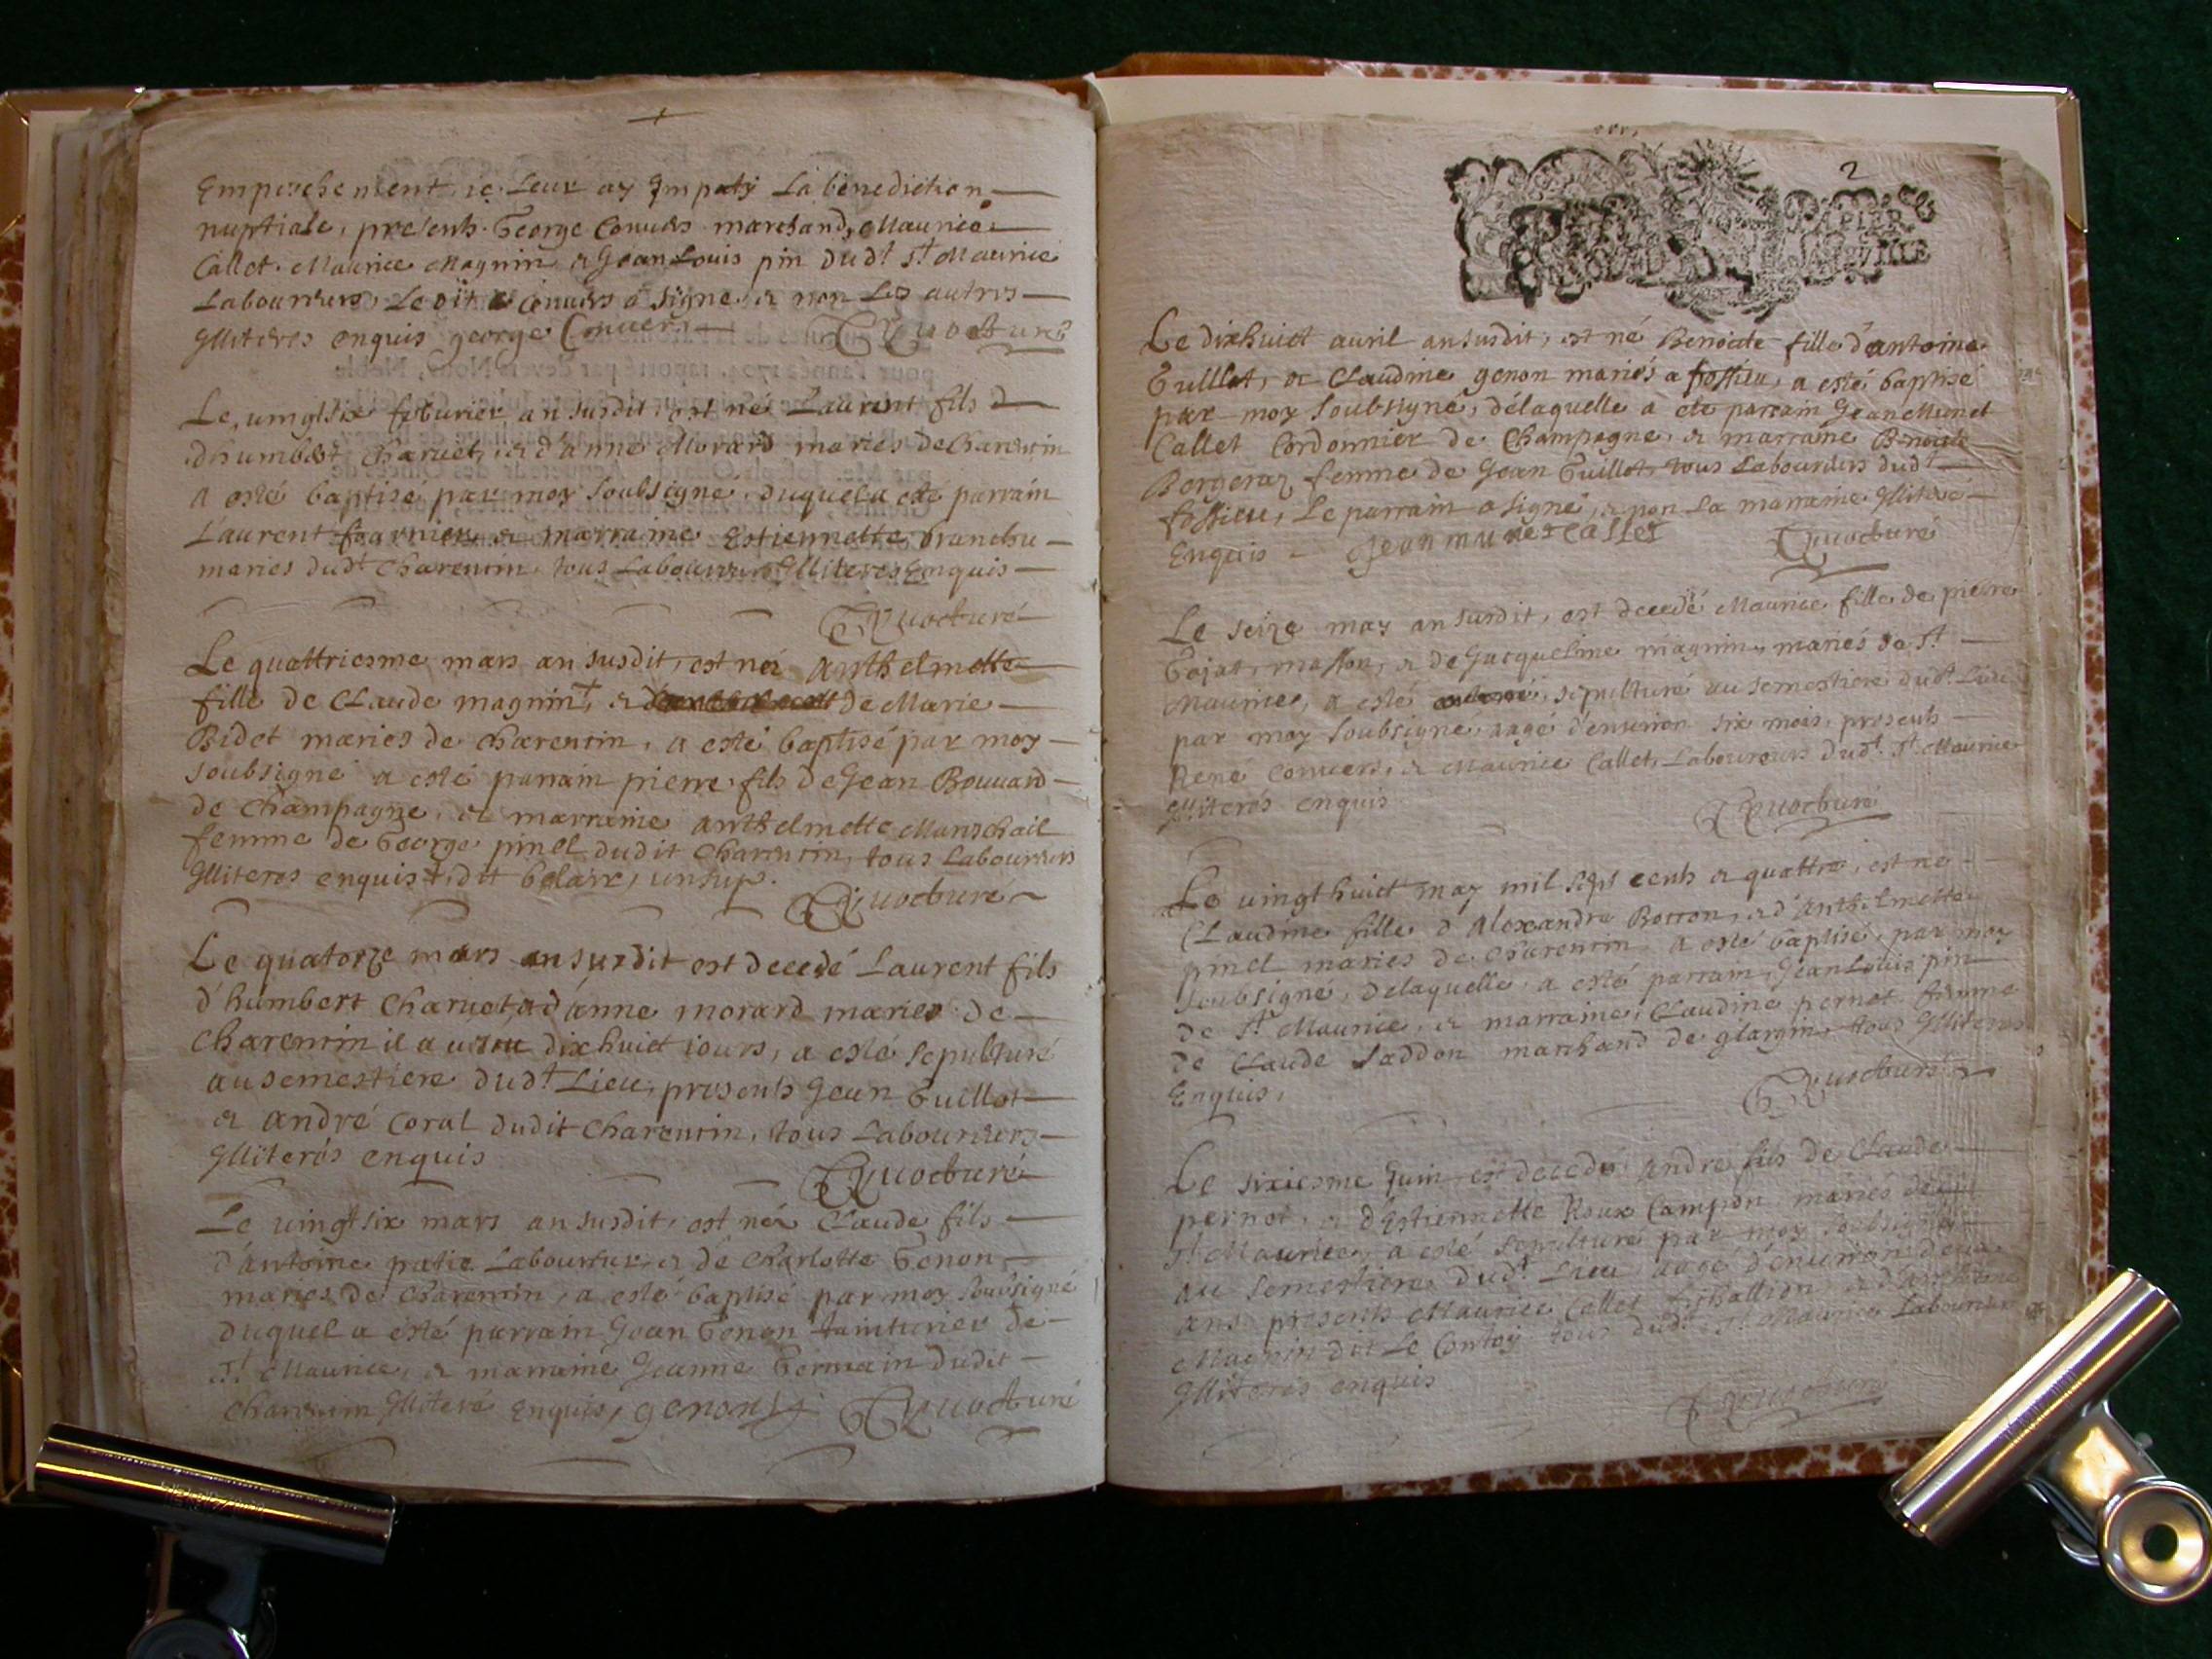 Empeschement, ie Leur ay Imparty La benediction
nuptiale, presents George Convers marchand, Maurice
Callet Maurice Magnin & Jean Louis pin dudt St Maurice
Laboureurs, Le dit Convers a signé, & non Les autres
Illiterés enquis george Convers
Le vingtsix feburier an susdit, est né Laurent fils
d'humbert Charvet, & d'anne Morard maries de Charentin
a esté baptisé par moy soubsigné, duquel a esté parrain
Laurent fournier & marraine Estiennette branchu
maries dudt Charentin, tous Laboureurs Illiteres Enquis
Le quattriesme mars an susdit, est née Anthelmette
fille de Claude magnin+, & de Marie
Bidot maries de Charentin, a esté baptisé par moy
soubsigné a esté parrain pierre fils de Jean Bouuard
de Champagne, & marraine anthelmette
femme de George pinel dudit Charentin, tous Laboureurs
Illiteres enquis +, dit belair,
Le quatorze mars an susdit est decedé Laurent fils
d'humbert Charvet, & d'anne morard maries de
Charentin il a dixhuict iours, a esté sepulturé
au semestiere dudt Lieu, presents Jean Guillot
& andré Coral dudit Charentin, tous Laboureurs
Illiterés enquis
Le vingtsix mars an susdit, est né Claude fils
d'antoine patie Laboureur & de Charlotte Genon
maries de Charentin, a esté baptisé par moy soubsigné
duquel a esté parrain Jean Genon tainturier de
St Maurice, & marraine Jeanne Germain dudit
Charentin Illiteré Enquis, genon
2
PAPIER
Le dixhuict auril an susdit, est né Benoite fille d'antoine
Guillot, & Claudine genon mariés a fossieu, a esté baptisé
par moy soubsigné, délaquelle a ete parrain Jean Munet
Callet Cordonnier de Champagne, & marraine Benoite
Bergeraz femme de Jean Guillot, tous Laboureurs dudt
fossieu, Le parrain a signé, & non La marraine Illiteré
Enquis Jean munet Callet
Le seize may an susdit, est decedé Maurice fille de pierre
Gojat, masson, & de Jacqueline magnin, mariés de St
Maurice, a esté sepulturé au semestiere dudt Lieu
par moy soubsigné, aagé d'enuiron six mois, presents
René Convers, & Maurice Callet, Laboureurs dudt St Maurice
Illiterés enquis
Le vingthuict may mil sept cents & quattre, est né
Claudine fille d'Alexandre Borron, & d'anthelmette
pinel maries de Charentin, a esté baptisé, par moy
soubsigné, delaquelle a esté parrain, Jean Louis pin
de St Maurice, & marraine, Claudine pernet femme
de Claude Laddon marchand de tous Illiteres
Enquis,
Le sixiesme Juin est decedé andré fils de Claude
pernet, & d'Estiennette Roux Campon mariés de
St Maurice, a esté sepulturé par moy soubsigné
au semestiere dudt Lieu aagé d'enuiron deux
ans presents Maurice Callet & d'anthelme
Magnin dit Le tous dudt St Maurice Laboureurs
Illiterés enquis